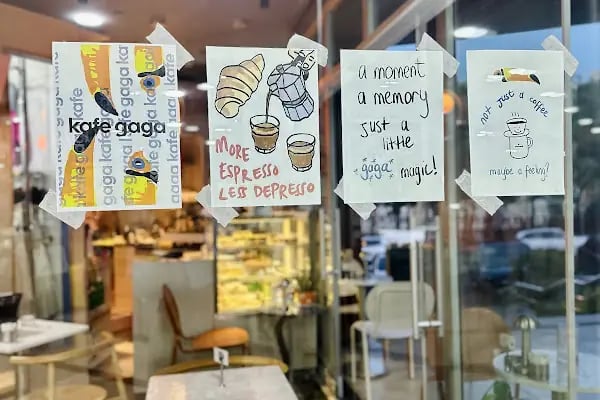 kafe gaga
gaga kafe
kafe gaga
MORE
ESPRESSO
LESS DEPRESSO
a moment
a memory
just a
little
gaga magic!
not just a coffee
maybe a feeling?